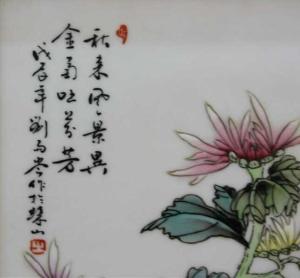 秋来风景異
金菊吐芬芳
戊辰年劉雨岑作於珠山